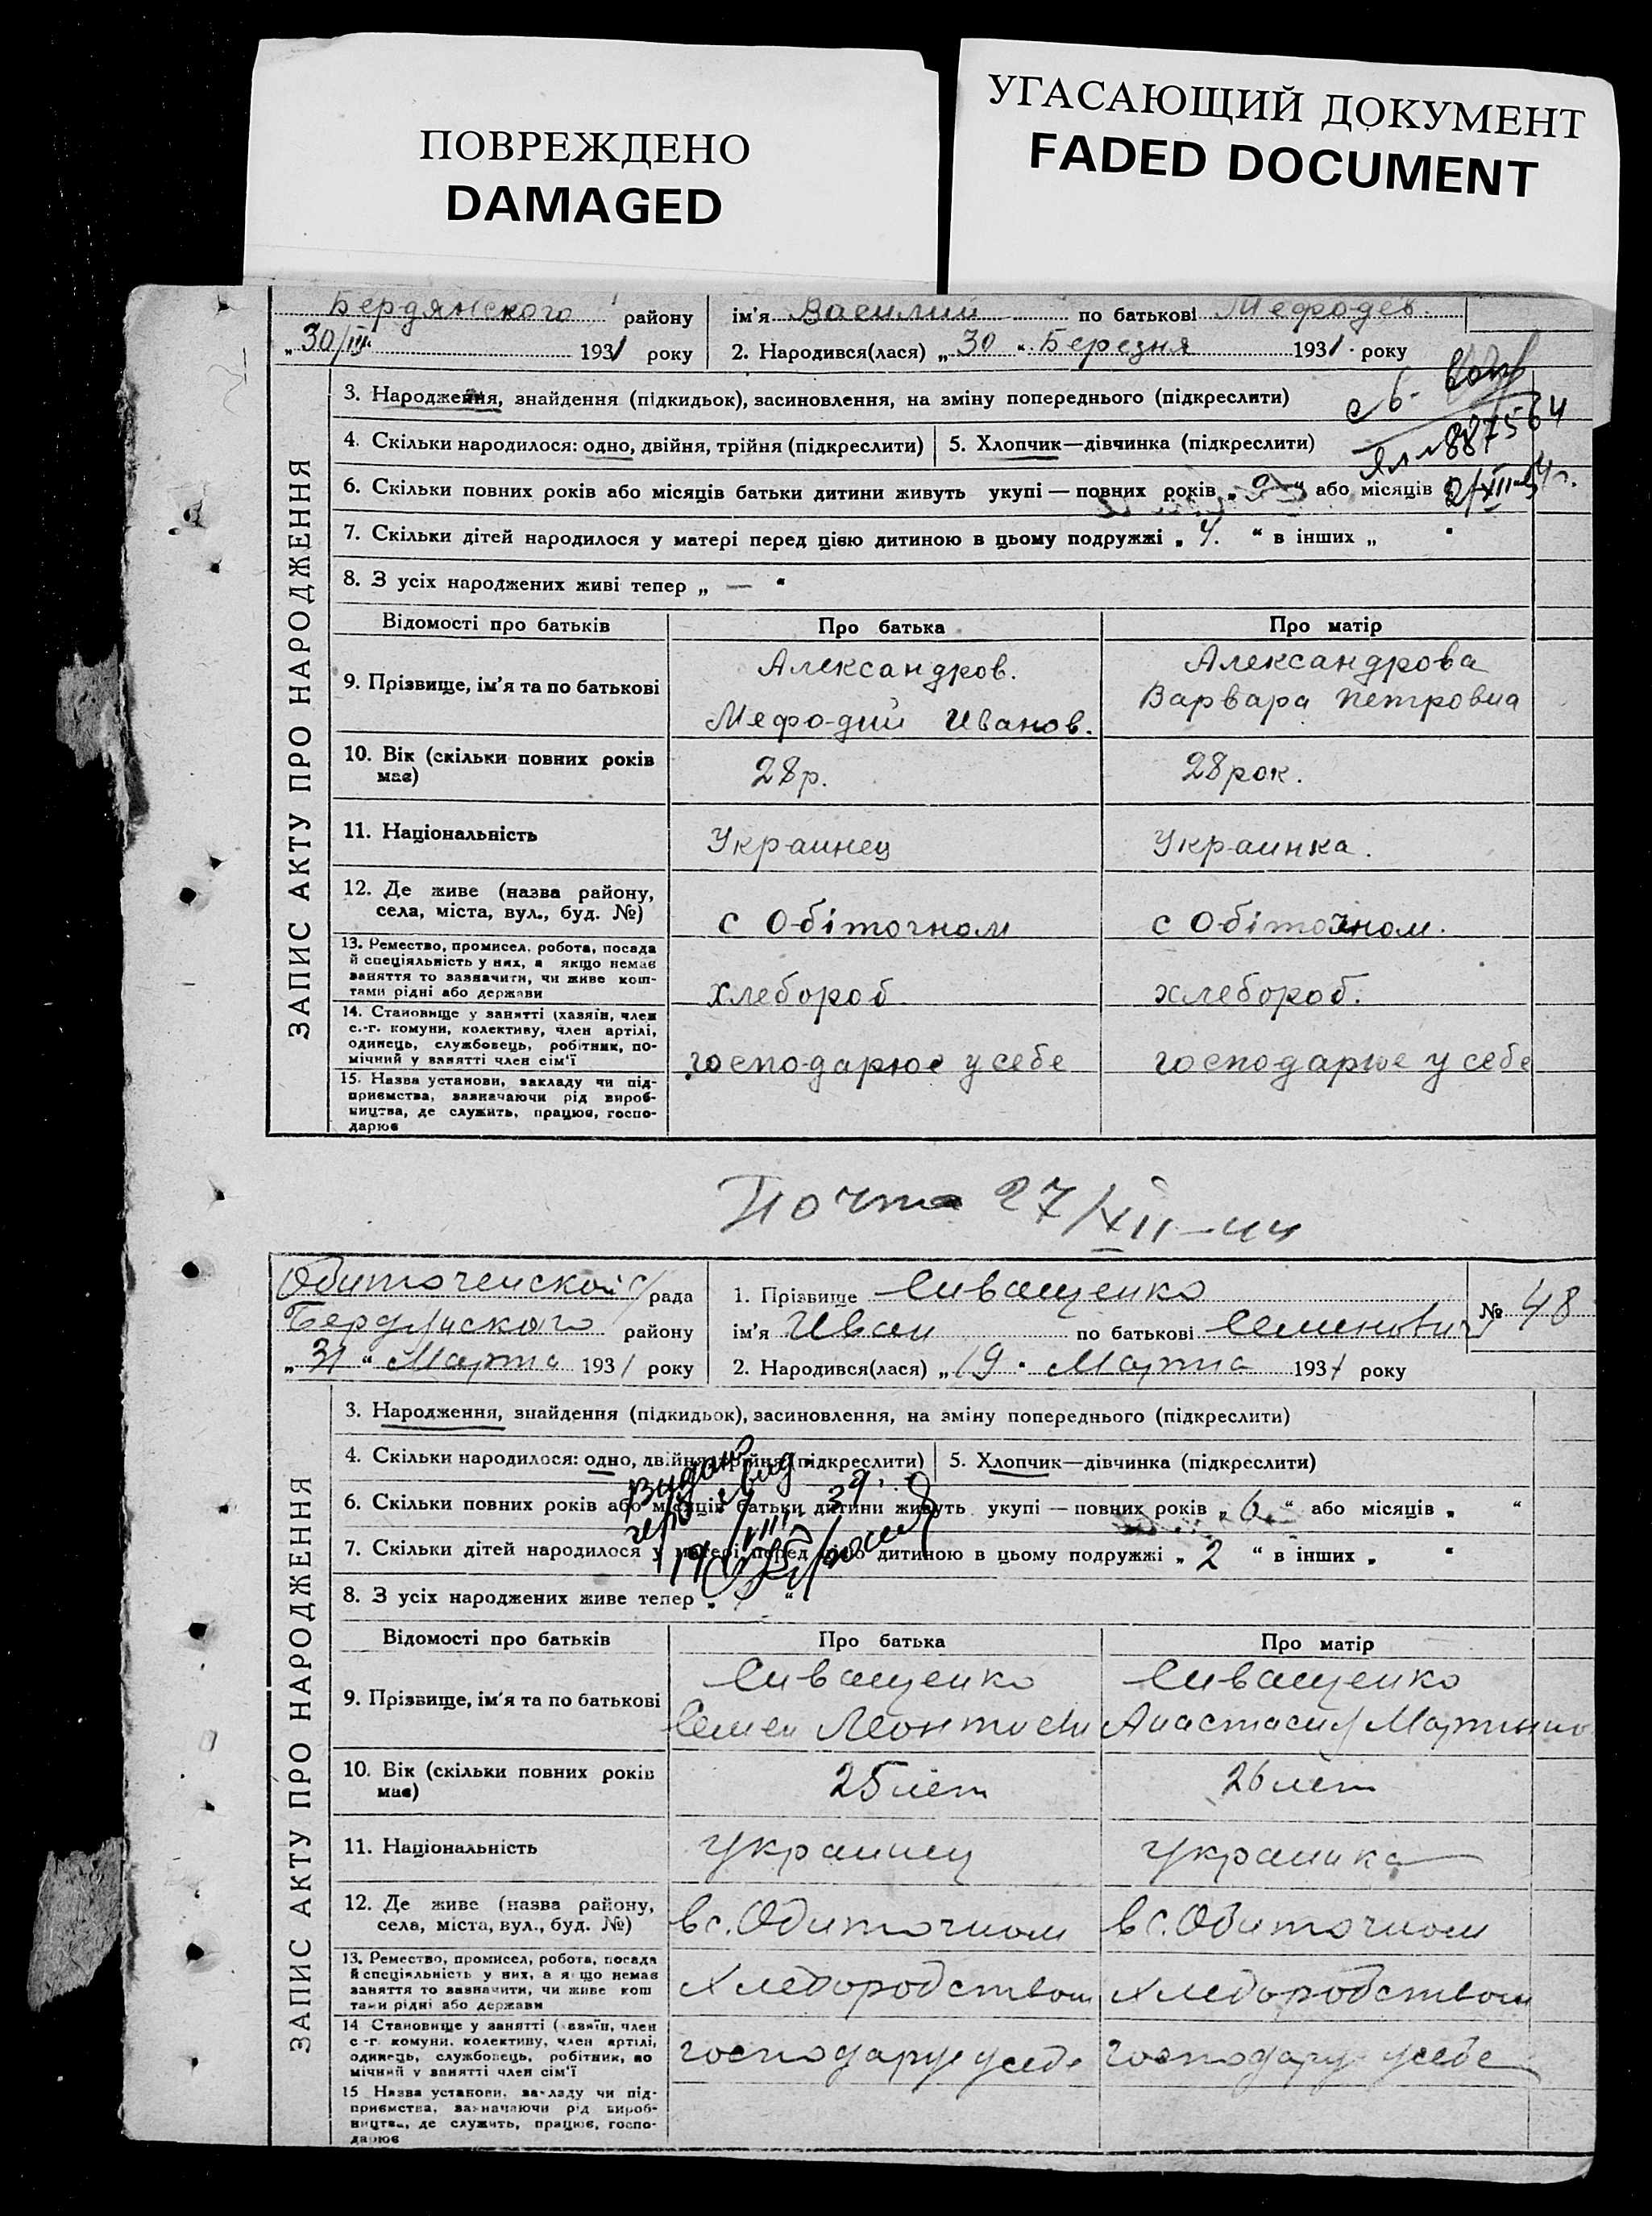 ПОВРЕЖДЕНО
DAMAGED
УГАСАЮЩИЙ ДОКУМЕНТ
FADED DOCUMENT
Бердянского району
ім'я Василий по батькові Мефодев.
„30/III 1931 року
2. Народився(лася) „30“ Березня 1931 року
ЗАПИС АКТУ ПРО НАРОДЖЕННЯ
3. Народження, знайдення (підкидьок), засиновлення, на зміну попереднього (підкреслити)
4. Скільки народилося: одно, двійня, трійня (підкреслити)
5. Хлопчик—дівчинка (підкреслити)
887564
6. Скільки повних років або місяців батьки дитини живуть укупі — повних років „9“ або місяців
2/XII-54г.
7. Скільки дітей народилося у матері перед цією дитиною в цьому подружжі „4.“ в інших „ “
8. З усіх народжених живі тепер „ — “
Відомості про батьків
Про батька
Про матір
9. Прізвище, ім'я та по батькові
Александров.
Мефодий Иванов.
Александрова
Варвара Петровна
10. Вік (скільки повних років
має)
28р.
28рок.
11. Національність
Украинец
Украинка.
12. Де живе (назва району,
села, міста, вул., буд. №)
с Обіточном
с Обіточном.
13. Ремество, промисел, робота, посада
й спеціяльність у них, а якщо немає
заняття то зазначити, чи живе кош-
тами рідні або держави
хлебороб
хлебороб.
14. Становище у занятті (хазяїн, член
с.-г. комуни, колективу, член артілі,
одинець, службовець, робітник, по-
мічний у занятті член сім'ї
господарює у себе
господарює у себе
15. Назва установи, закладу чи під-
приємства, зазначаючи рід вироб-
ництва, де служить, працює, госпо-
дарює
Почта 27/XII-44
Обиточенской с/рада
1. Прізвище Сиващенко
№ 48
Бердянского району
ім'я Иван по батькові Семенович
„31“ Марта 1931 року
2. Народився(лася) „19“ Марта 1931 року
ЗАПИС АКТУ ПРО НАРОДЖЕННЯ
3. Народження, знайдення (підкидьок), засиновлення, на зміну попереднього (підкреслити)
4. Скільки народилося: одно, двійня, трійня (підкреслити)
5. Хлопчик—дівчинка (підкреслити)
Видано
6. Скільки повних років або місяців батьки дитини живуть укупі — повних років „6“ або місяців „ “
7. Скільки дітей народилося у матері перед цією дитиною в цьому подружжі „2“ в інших „ “
8. З усіх народжених живе тепер „ “
Відомості про батьків
Про батька
Про матір
9. Прізвище, ім'я та по батькові
Сиващенко
Семен Леонтиев
Сиващенко
Анастасия Мартинно
10. Вік (скільки повних років
має)
25 лет
26 лет
11. Національність
Украинец
Украинка
12. Де живе (назва району,
села, міста, вул., буд. №)
в с. Обиточном
в с. Обиточном
13. Ремество, промисел, робота, посада
й спеціяльність у них, а якщо немає
заняття то зазначити, чи живе кош
тами рідні або держави
хлебородством
хлебородством
14 Становище у занятті (хазяїн, член
с-г. комуни, колективу, член артілі,
одинець, службовець, робітник, по
мічний у занятті член сім'ї
господарує у себе
господарує у себе
15 Назва установи, закладу чи під-
приємства, зазначаючи рід вироб-
ництва, де служить, працює, госпо-
дарює